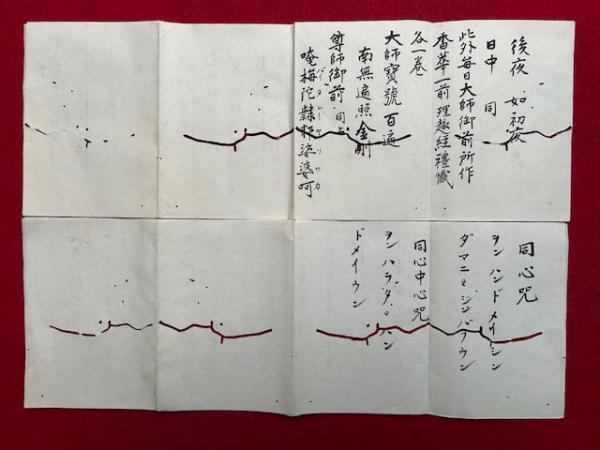 後夜 如初夜
日中 同
此外毎日大師御前所作
香華一前 理趣経禮懺
各一巻
大師寶號百遍
南無遍照金剛
尊師御前 同上
唵梅陀隸 娑婆呵
同心呪
ヲンハンドメイ シン
ダマニ ジンバラウン
同心中心呪
ヲンハラダ ハン
ドメイウン